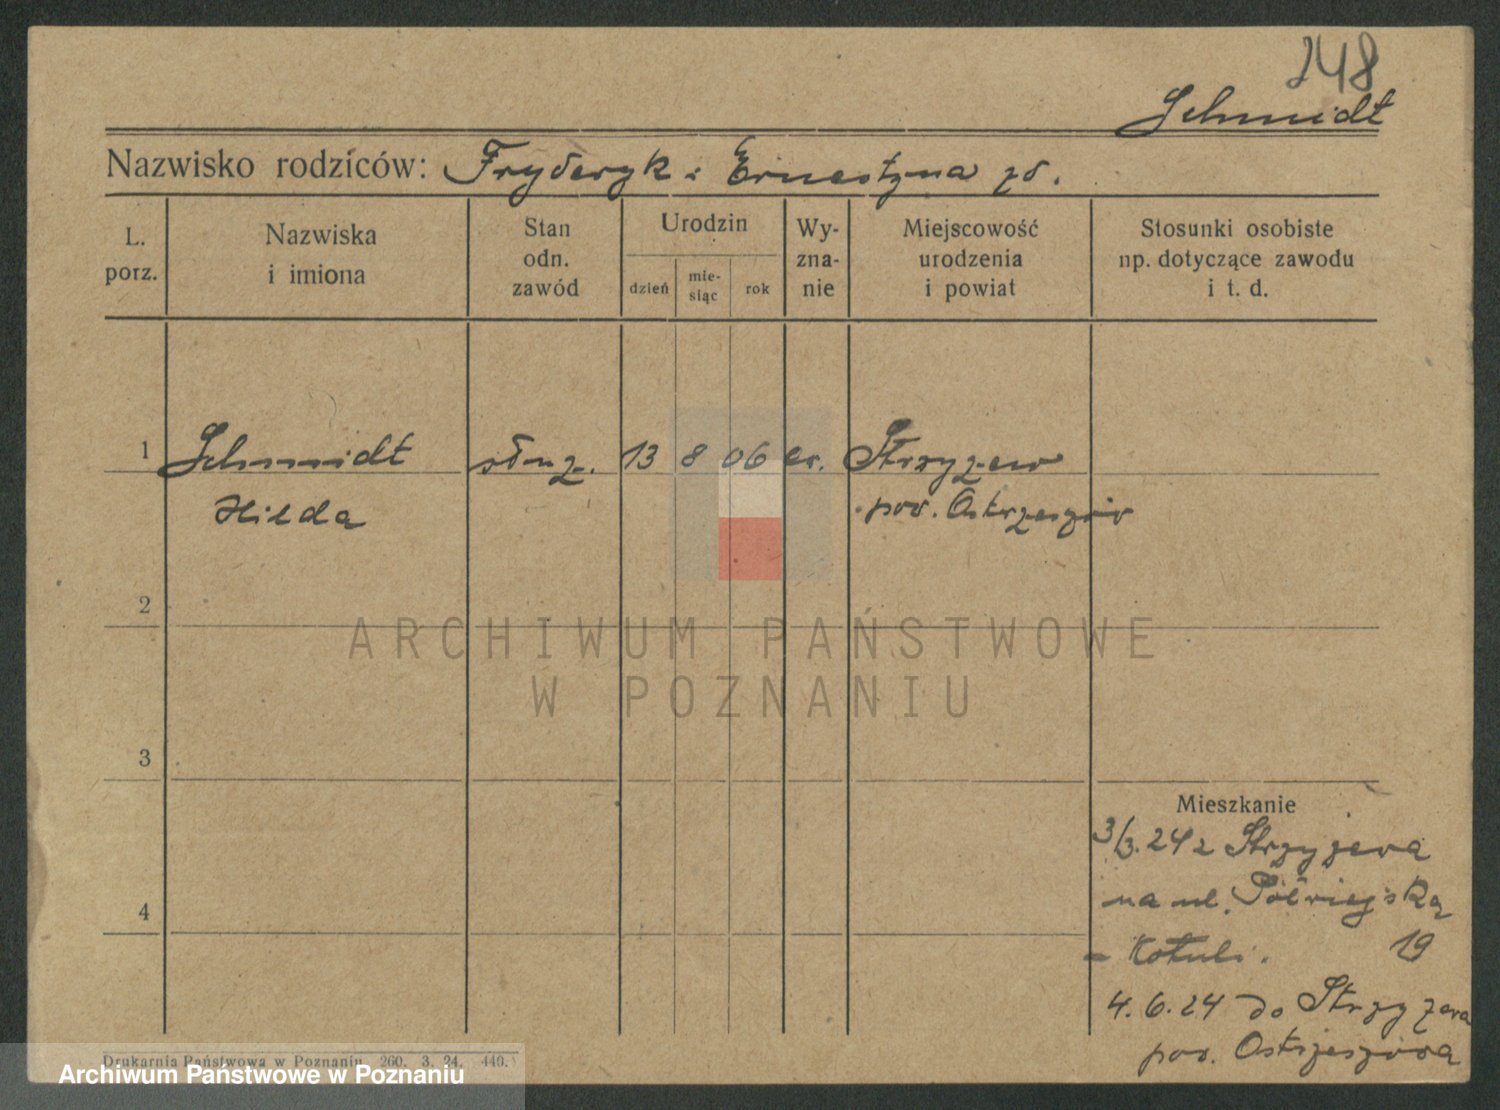 248
Schmidt
Nazwisko rodziców: Fryderyk i Ernestyna zd.
L. porz.
Nazwiska i imiona
Stan odn. zawód
Urodzin
dzień
mie-
siąc
rok
Wy-
zna-
nie
Miejscowość urodzenia i powiat
Stosunki osobiste np. dotyczące zawodu i t. d.
1 Schmidt służ. 13 8 06 ew. Strzyżew
Hilda pow. Ostrzeszów
2
ARCHIWUM PAŃSTWOWE
W POZNANIU
3
Mieszkanie
3/3.24 z Strzyżewa
na ul. Półwiejską
4
19
4.6.24 do Strzyżewa
pow. Ostrzeszowa
Drukarnia Państwowa w Poznaniu 260. 3. 24. 440.
Archiwum Państwowe w Poznaniu